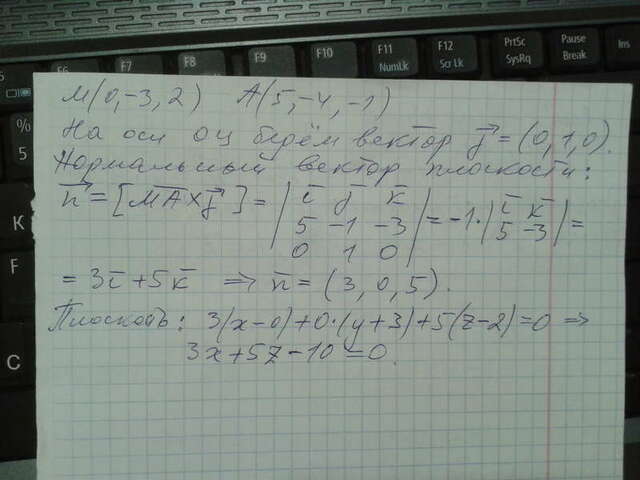 F6 F7 F8 F9 F10 F11 NumLk F12 Scr Lk PrtSc SysRq Pause Break Ins
% 5
K
F
C
M(0,-3,2) A(5,-4,-1)
На оси оц берём вектор j⃗ = (0,1,0).
Нормальный вектор плоскости:
n⃗ = [MA × j⃗] = | i j k | = -1·| i k | =
5 -1 -3 5 -3
0 1 0
= 3i + 5k ⇒ n = (3, 0, 5).
Плоскость: 3(x-0)+0·(y+3)+5(z-2)=0 ⇒
3x+5z-10=0.